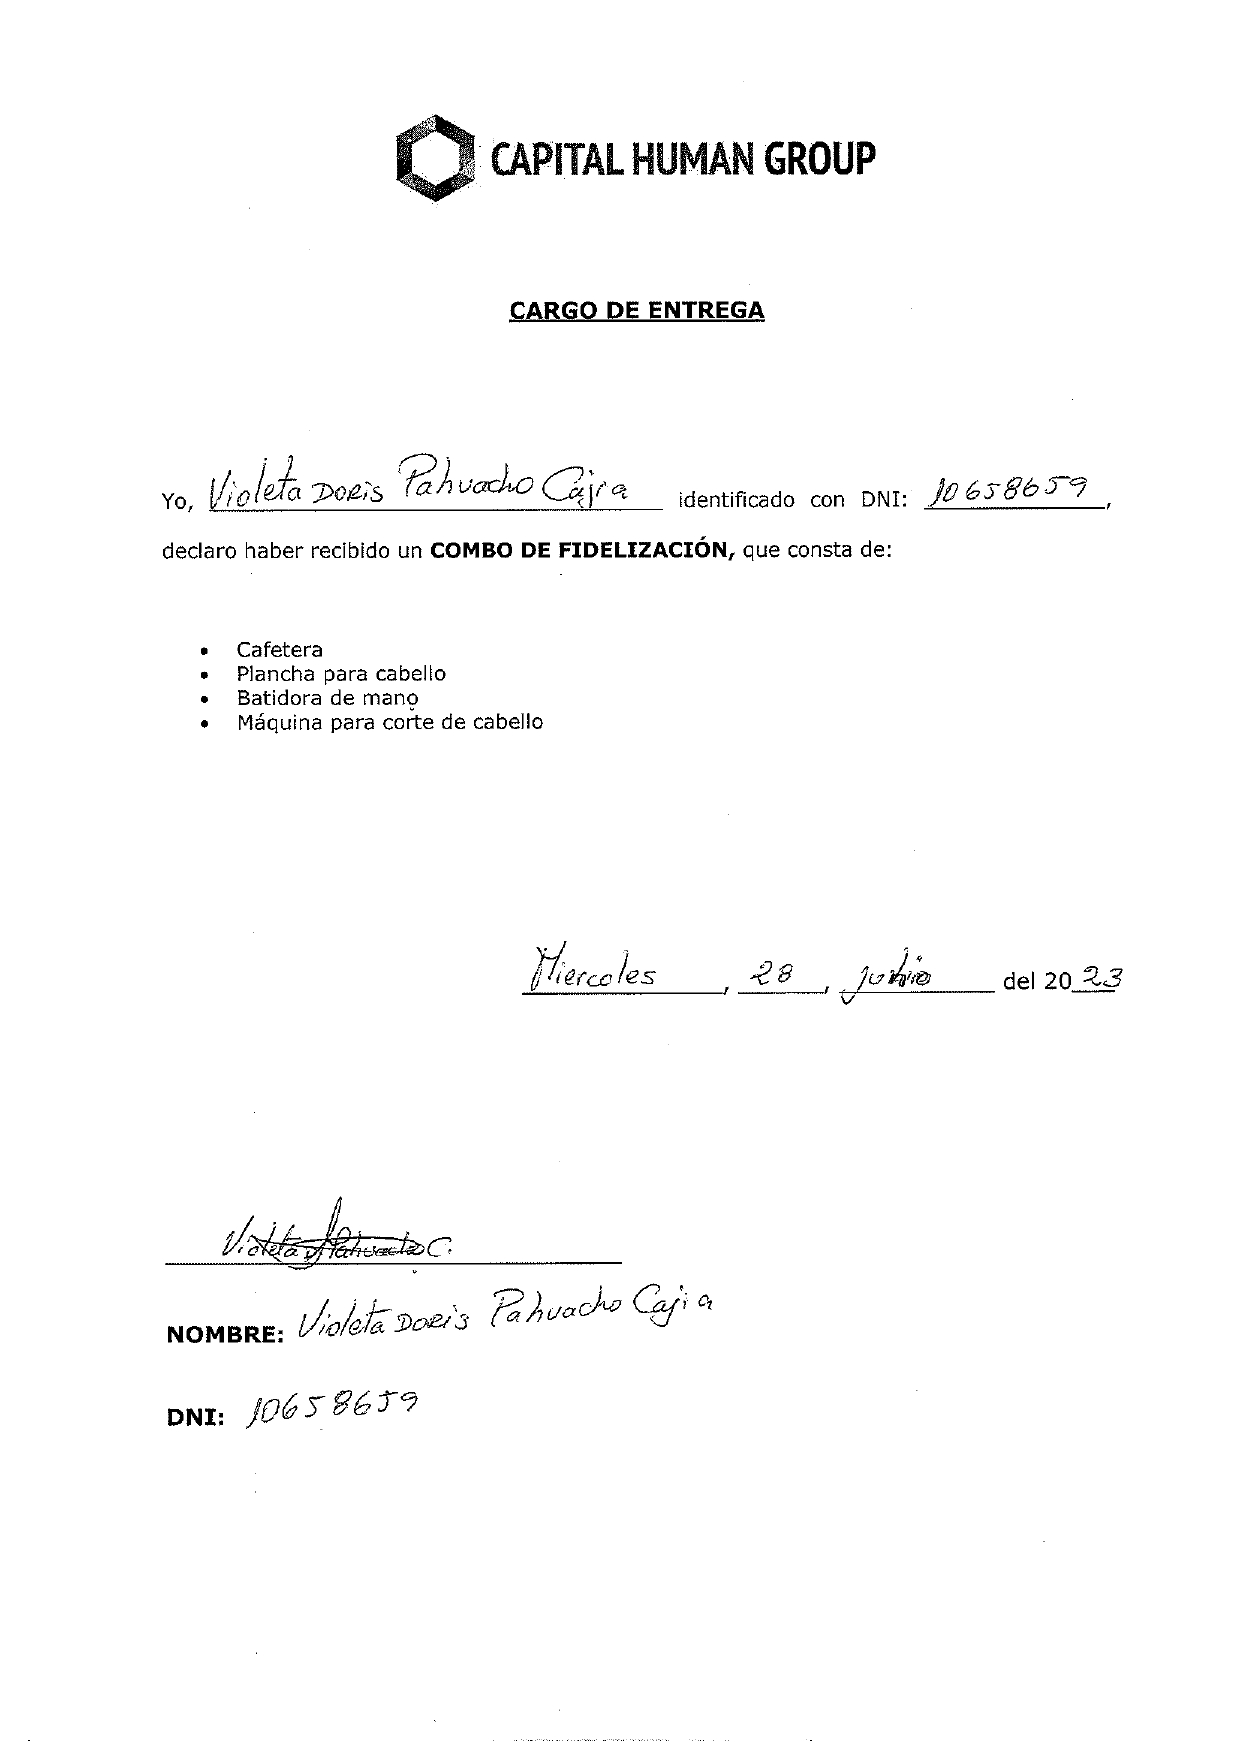 CAPITAL HUMAN GROUP
CARGO DE ENTREGA
Yo, Violeta Doris Pahuacho Cajia identificado con DNI: 10658659,
declaro haber recibido un COMBO DE FIDELIZACIÓN, que consta de:
• Cafetera
• Plancha para cabello
• Batidora de mano
• Máquina para corte de cabello
Miercoles, 28, junio del 2023
Violeta Pahuacho C.
NOMBRE: Violeta Doris Pahuacho Cajia
DNI: 10658659